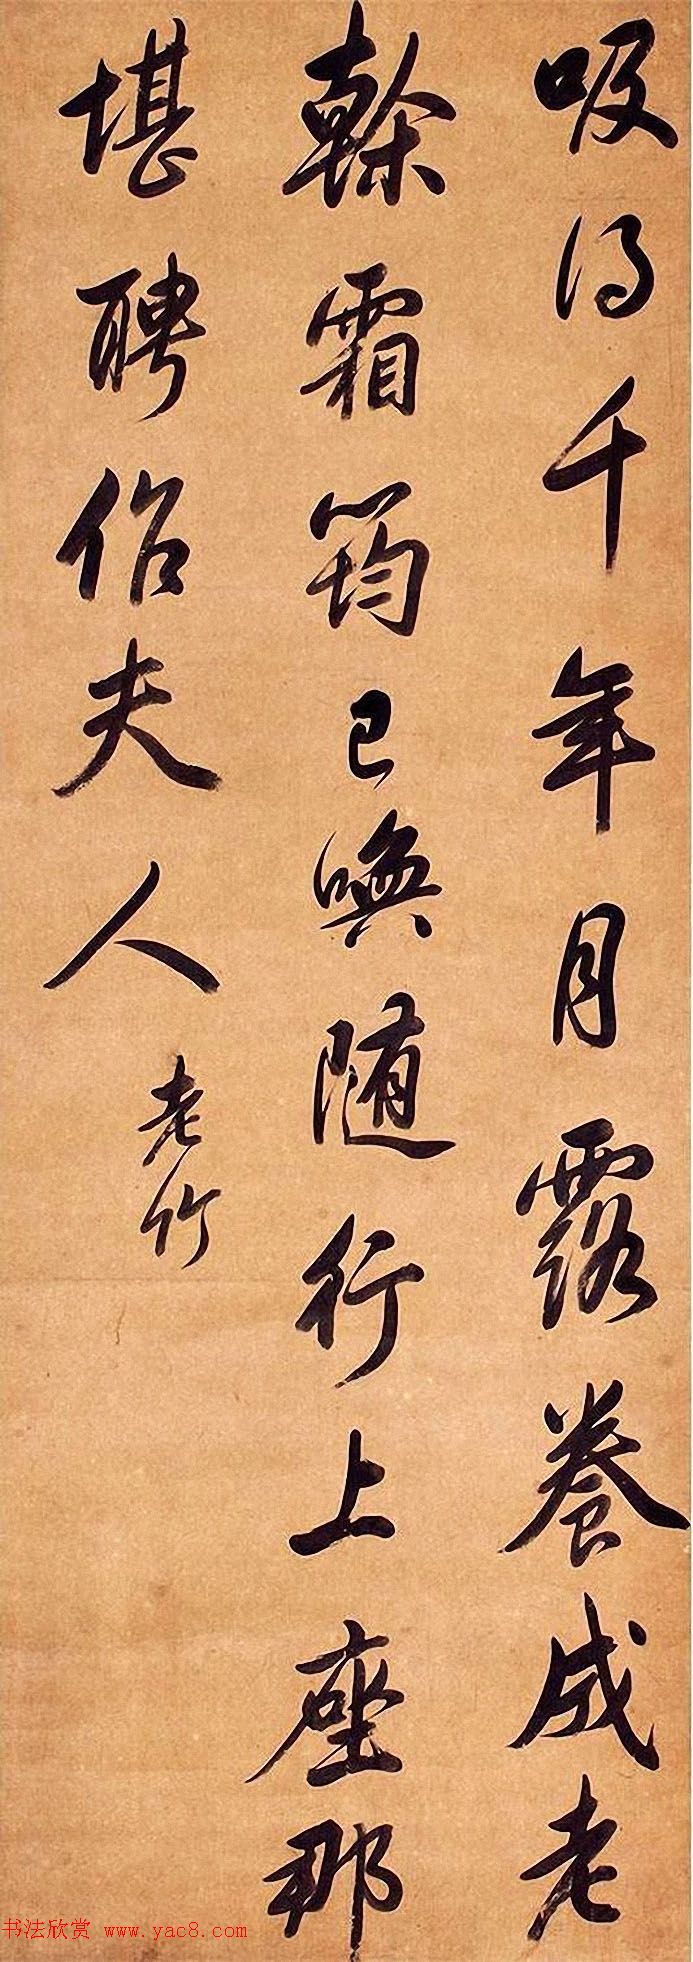 吸得千年月露養成老
榦霜筠已喚随行上座那
堪聘作夫人
老竹
书法欣赏 www.yac8.com